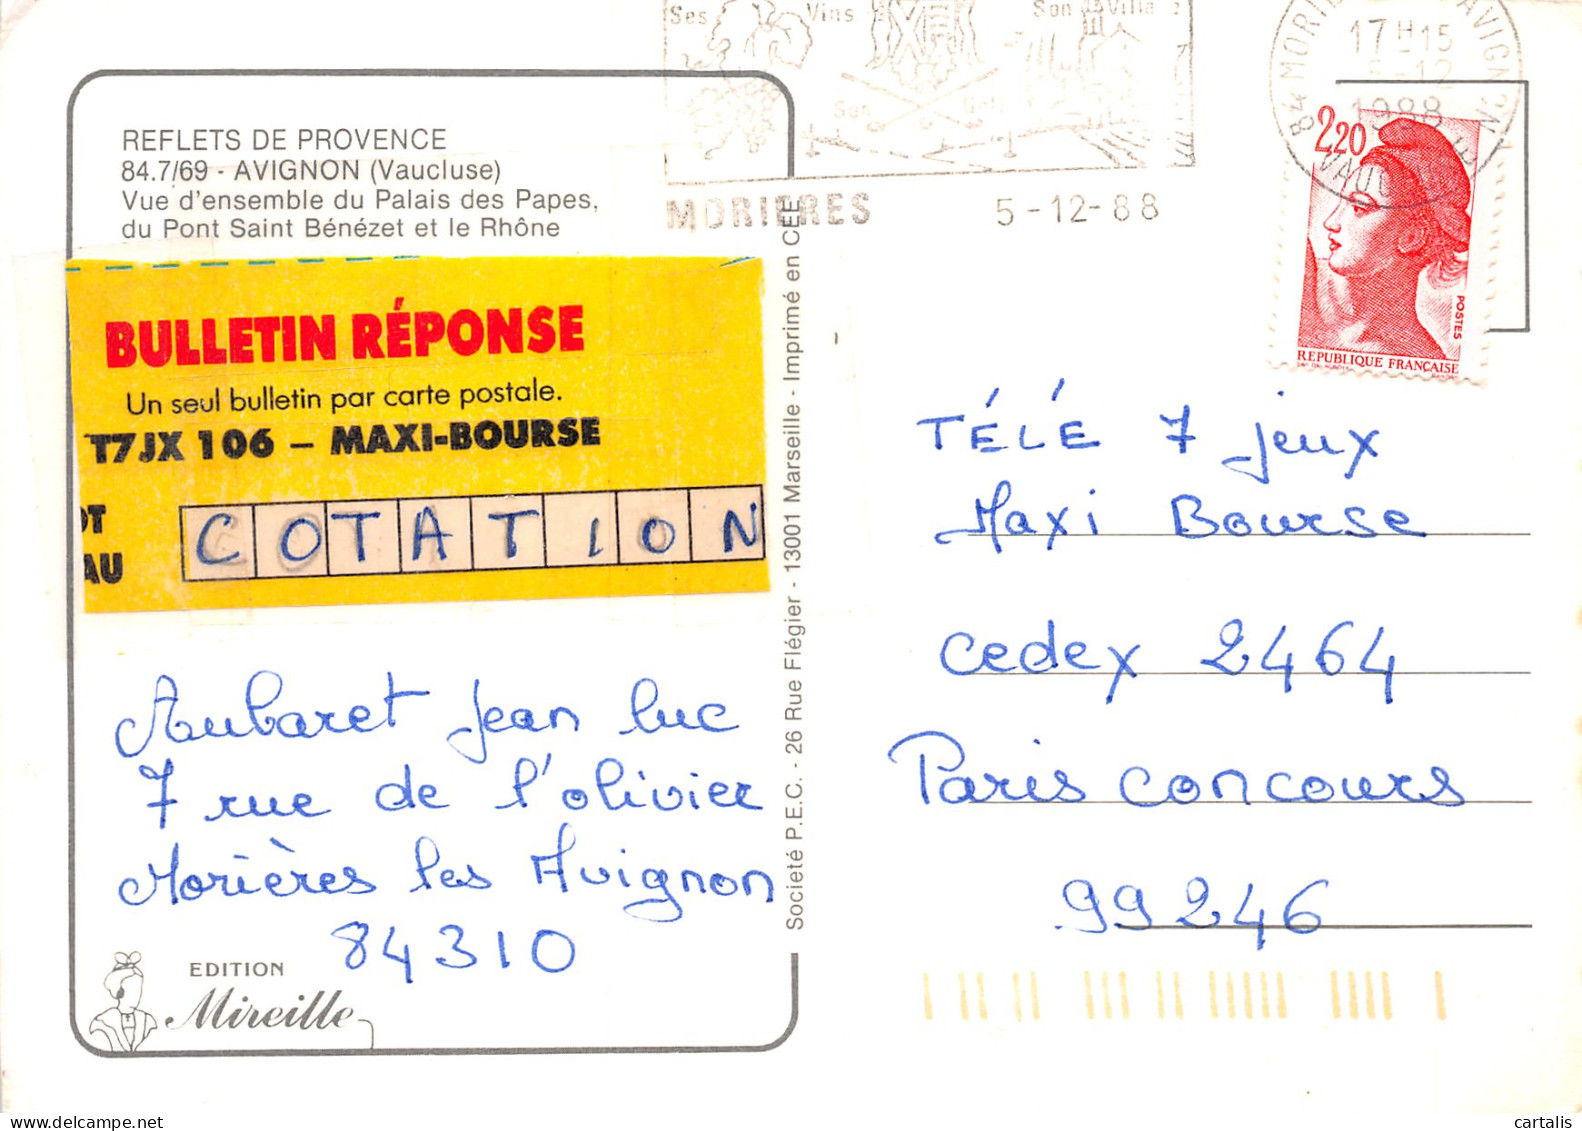 Ses Vins Son Village
Ses
MORIERES 5-12-88
17 H 15
5-12
1988
VAUCLUSE
2,20
POSTES
REPUBLIQUE FRANÇAISE
REFLETS DE PROVENCE
84.7/69 - AVIGNON (Vaucluse)
Vue d'ensemble du Palais des Papes,
du Pont Saint Bénézet et le Rhône
BULLETIN RÉPONSE
Un seul bulletin par carte postale.
T7JX 106 – MAXI-BOURSE
OT
AU
COTATION
Aubaret jean luc
7 rue de l'olivier
Morières les Avignon
84310
EDITION
Mireille
Societé P.E.C. - 26 Rue Flégier - 13001 Marseille - Imprimé en CEE
TÉLÉ 7 jeux
Maxi Bourse
Cedex 2464
Paris concours
99246
cartalis